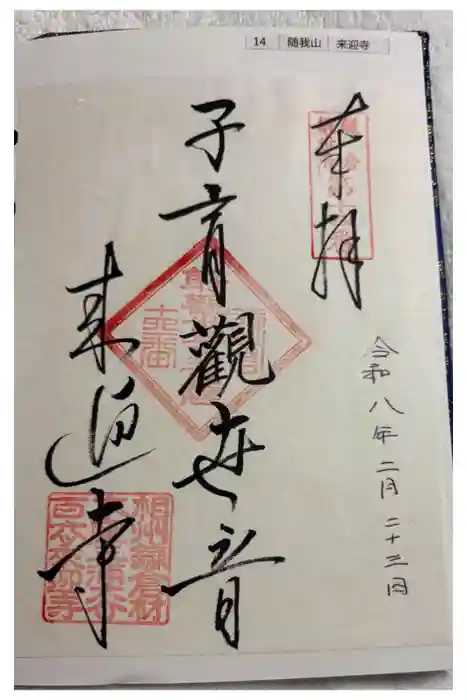 14 随我山 来迎寺
奉拝
令和八年二月二十三日
子育觀世音
来迎寺
相州鎌倉材